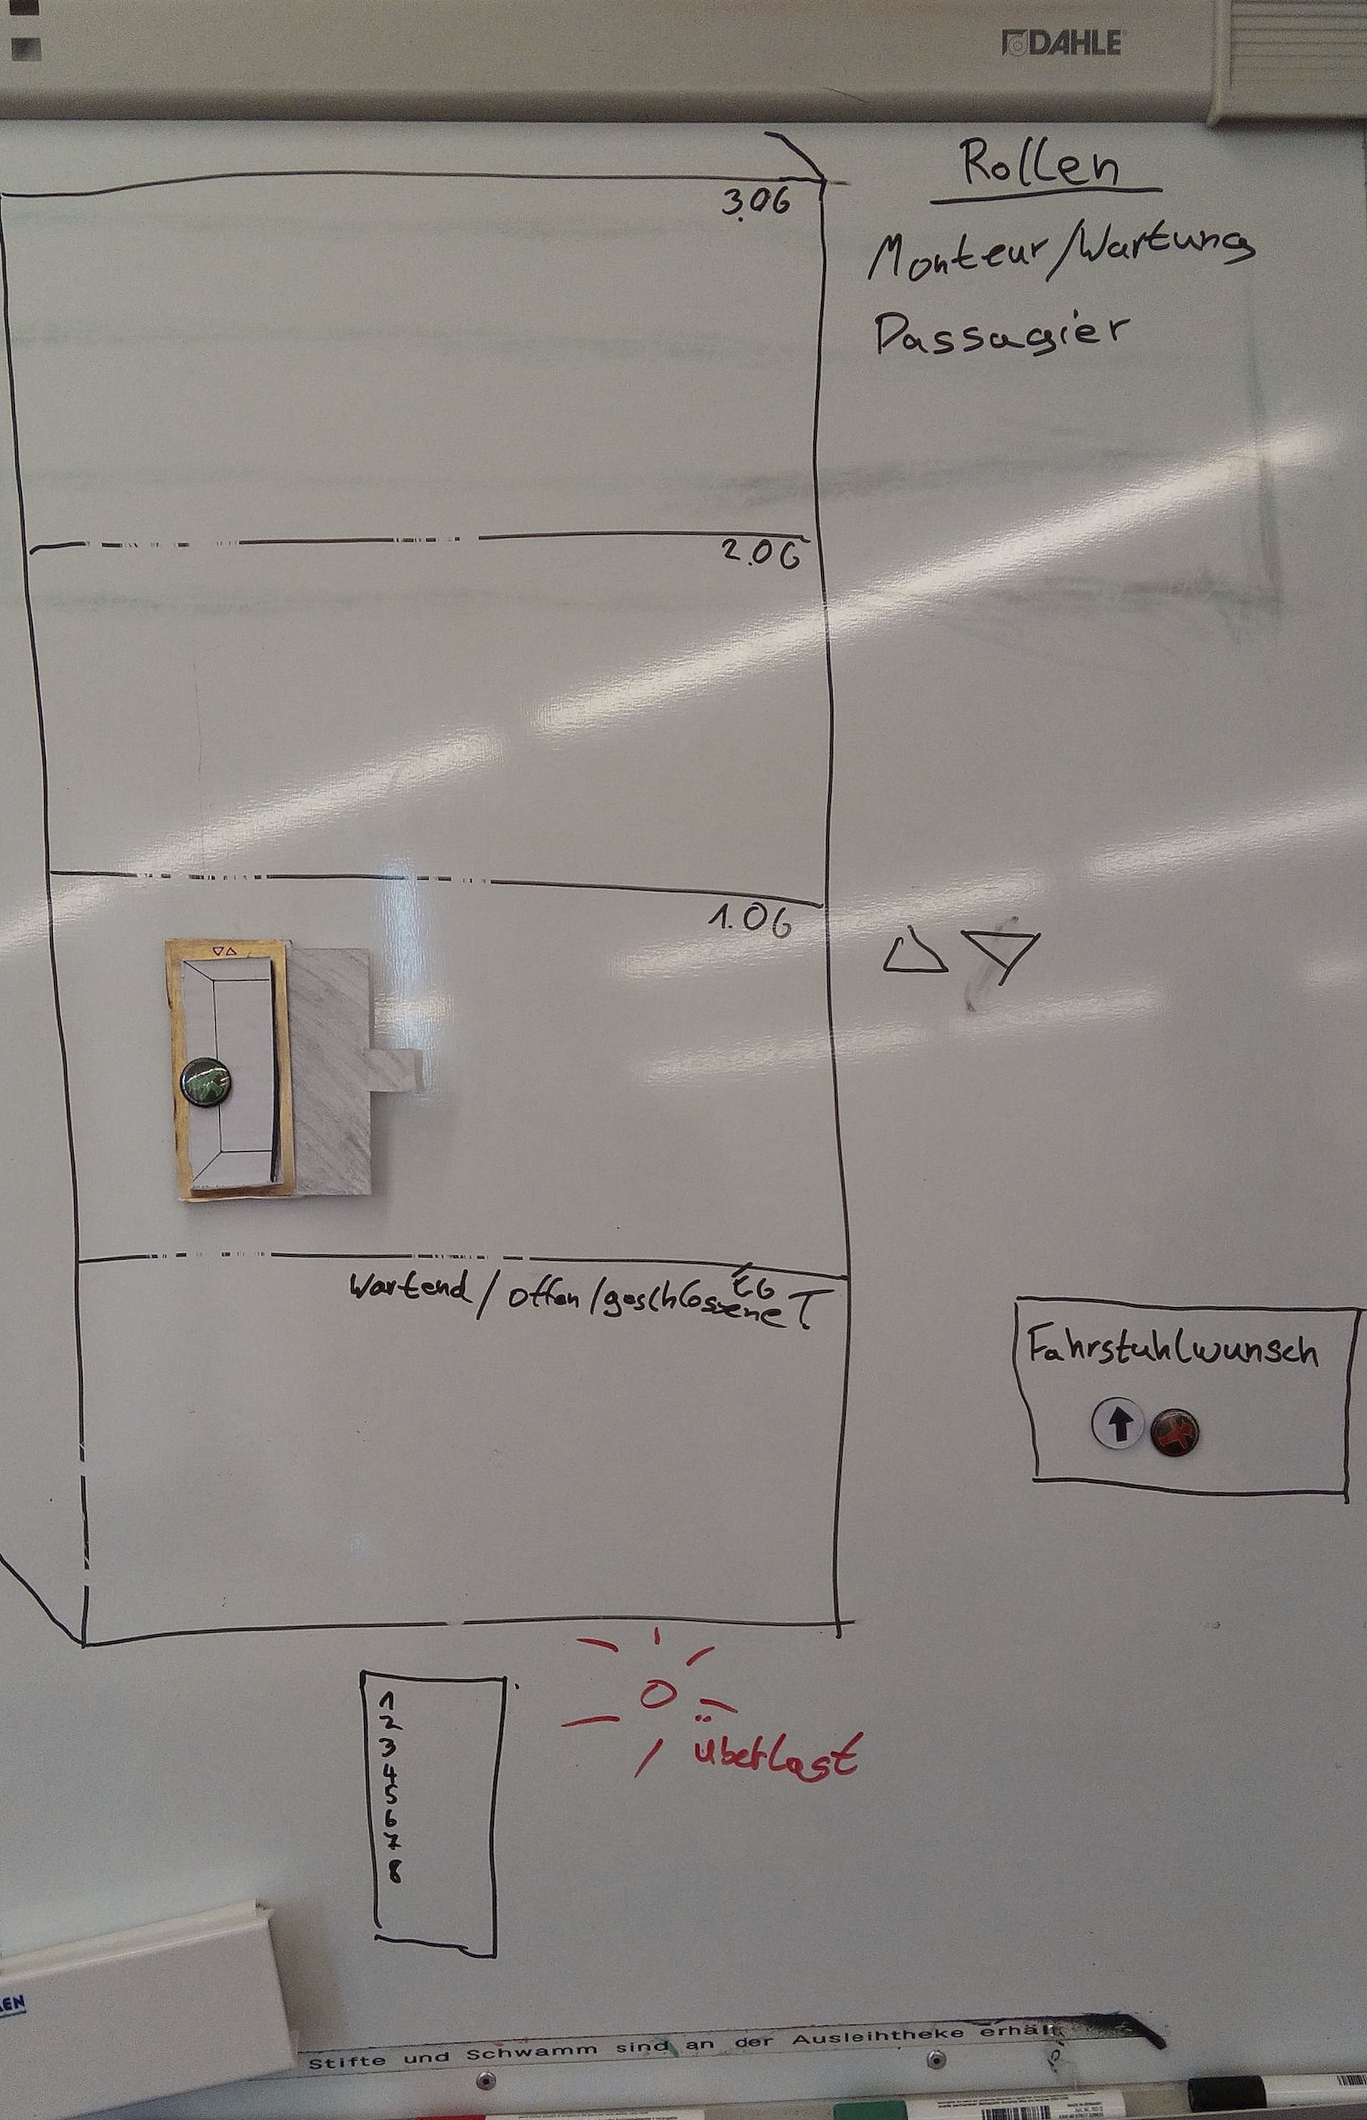 DAHLE
Rollen
Monteur/Wartung
Passagier
3.OG
2.OG
1.OG
EG
Wartend / offen / geschlossene T.
Fahrstuhlwunsch
1
2
3
4
5
6
7
8
Überlast
Stifte und Schwamm sind an der Ausleihtheke erhält